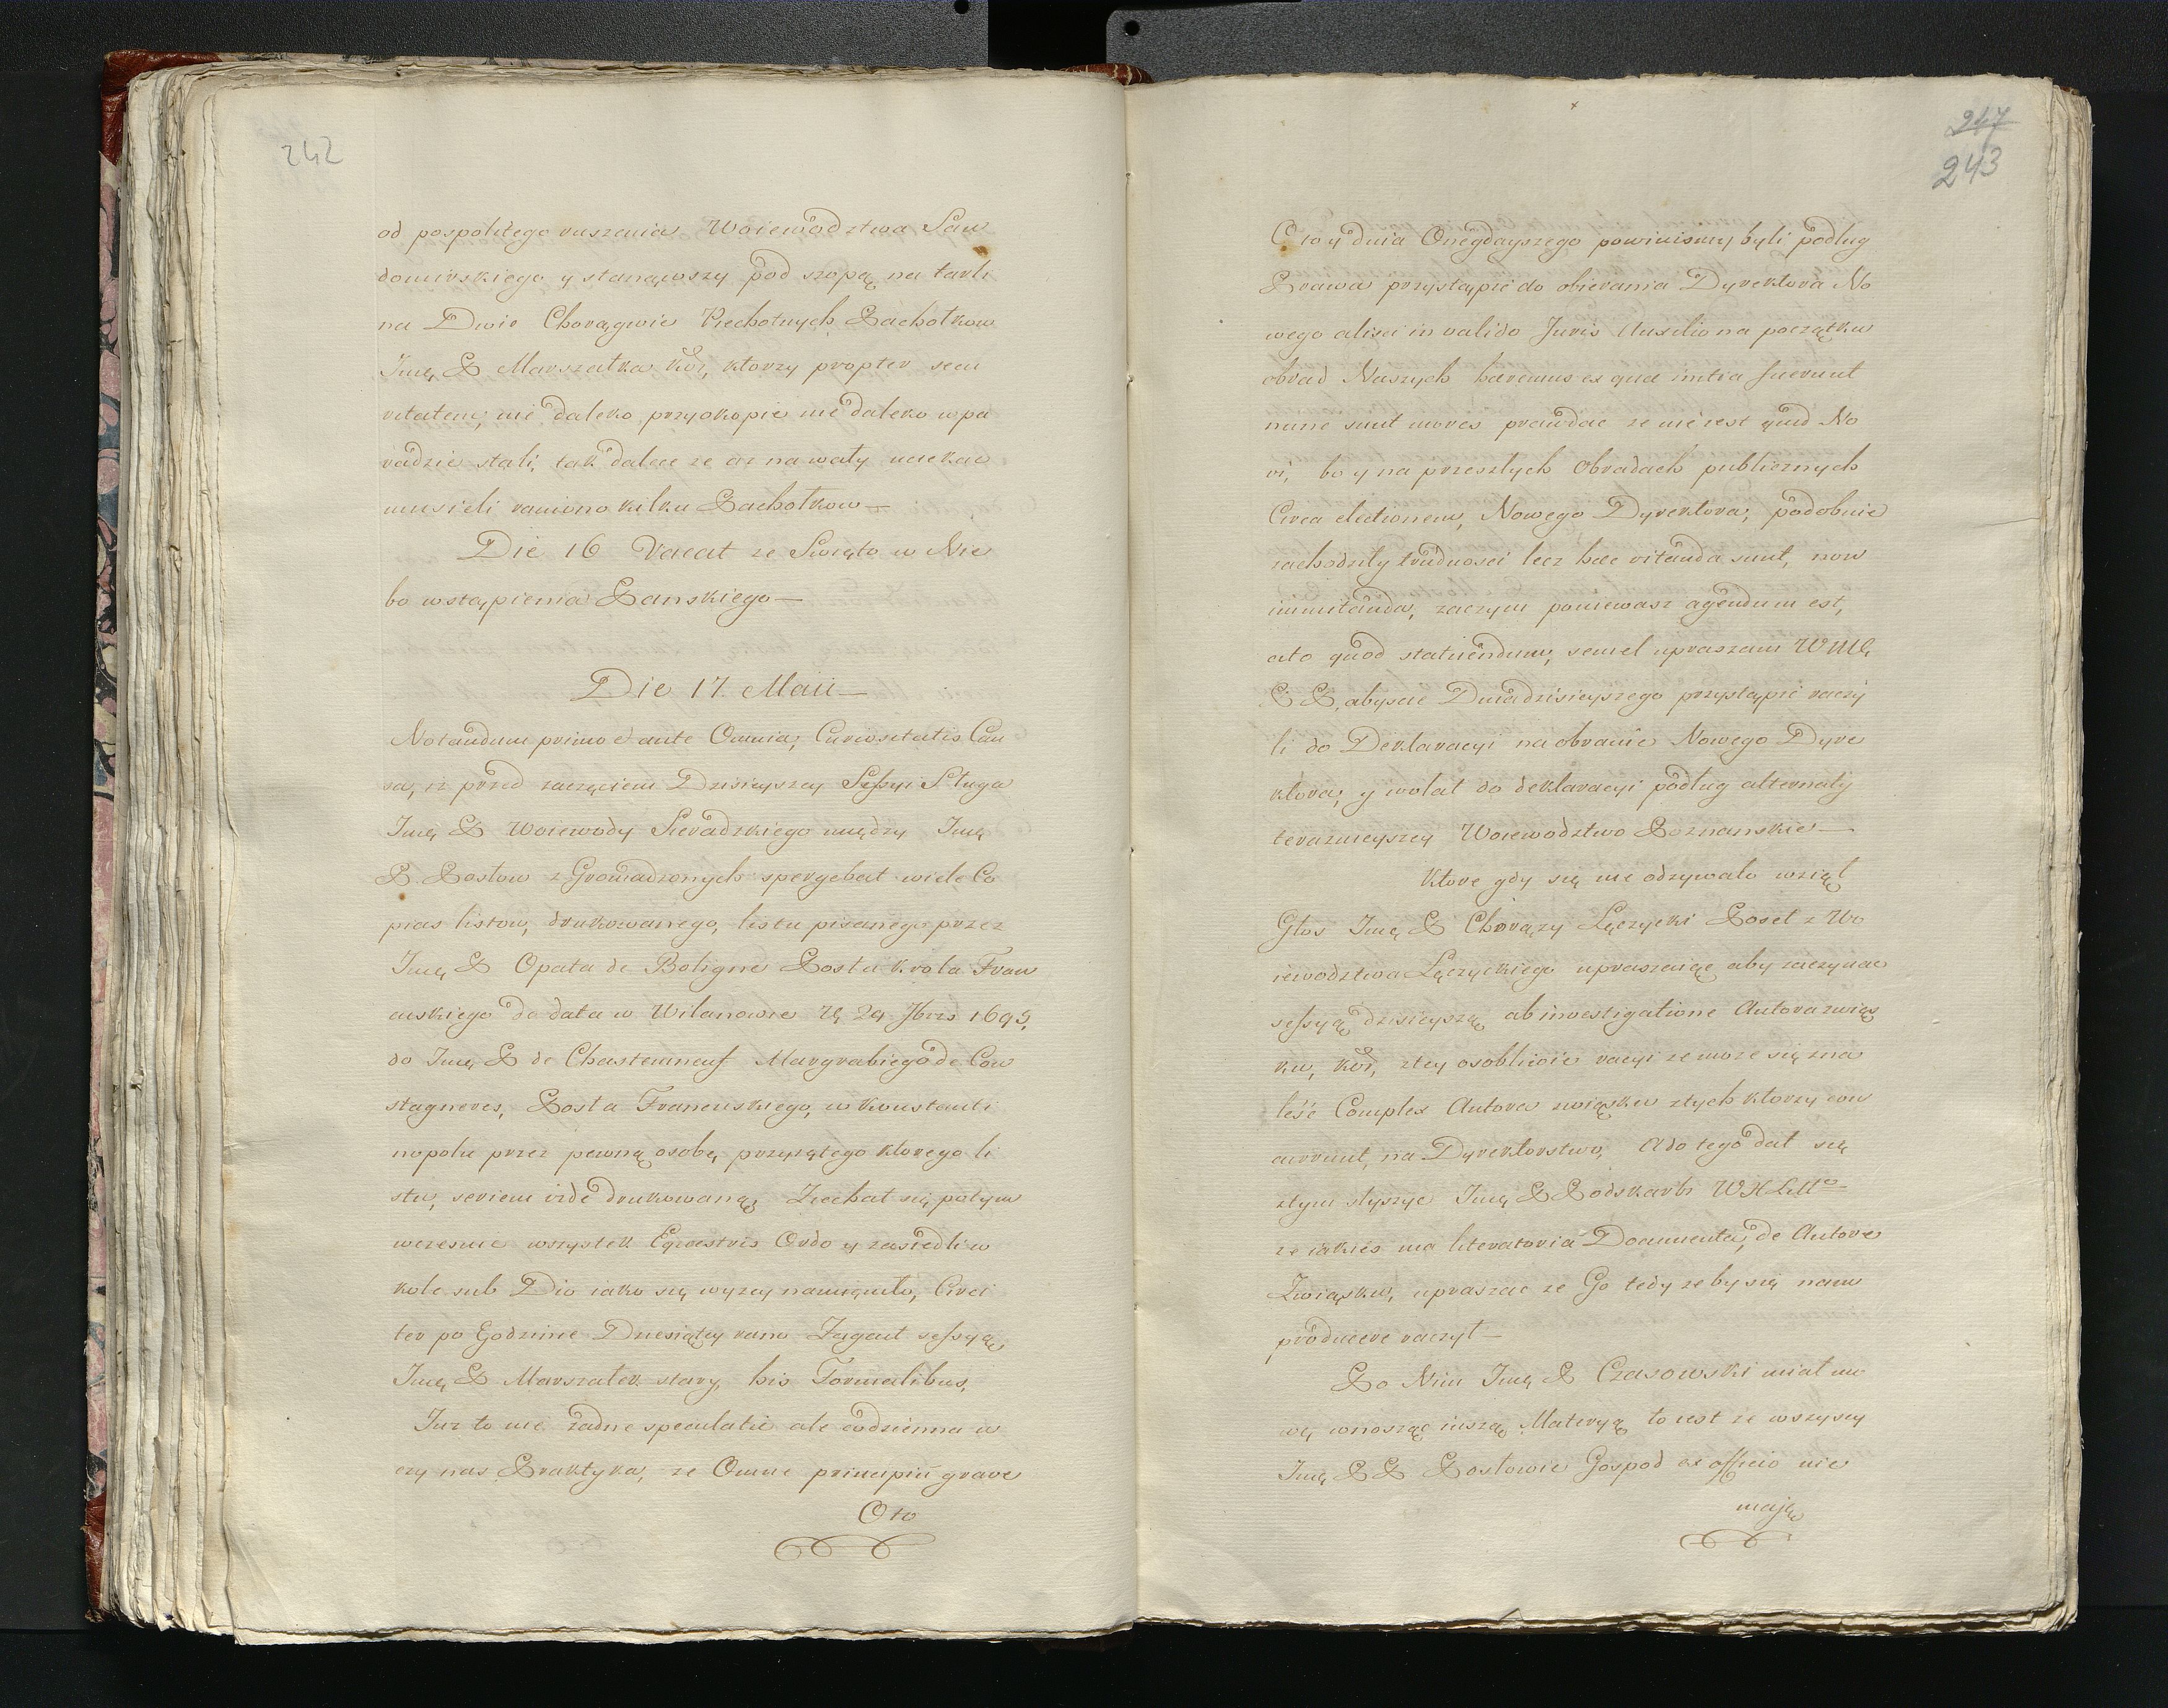 242
od pospolitego ruszenia Woiewodztwa San
domirskiego y stanąwszy pod szopą na tarli
na Dwie Chorągwie Piechotnych Pachołkow
Jmę P Marszałka Kor, ktorzy propter secu
ritatem, nie daleko przyokopie nie daleko w pa
radzie stali, tak dalece ze az na wały uciekac
musieli raniono kilku Pachołkow—
Die 16 Vacat ze Swięto w Nie
bo wstąpienia Panskiego—
Die 17. Maii—
Notandum primo et ante Omnia, Curiositatis Cau
sa, iz przed zaczęciem Dzisieyszey Sessyi Sługa
Jmę P Woiewody Sieradzkiego między Jmę
P. Posłow zGromadzonych spergebat wiele Co
pias listow, drukowanego, listu pisanego przez
Jmę P Opata de Poligne Posła Krola Fran
cuskiego de data w Wilanowie 29 Jbris 1695,
do Jmę P de Chasteauneuf Margrabiego de Cas
stagneres, Posła Francuskiego, w Konstanti
nopolu przez pewną osobę przeyętego ktorego li
stu, seriem vide drukowaną, Ziechał się potym
wczesnie wszystek Eqvestris Ordo y zasiedli w
kole sub Dio iako się wyzey namięniło, Circi
ter po Godzinie Dziesiątey rano Zagaił sessyą
Jmę P Marszałek stary, his Formalibus,
Juz to nie żadne speculatie ale codzienna u
czy nas Praktyka, ze Omne principiū grave
Oto
247
243
Oto y dnia Onegdayszego powinismy byli podług
Prawa przystąpić do obierania Dyrektora No
wego alisci in valido Juris Auxilio na początku
obrad Naszych haremus ex qua initia fuerunt
nunc sunt mores prawdac ze nie iest quid No
vi, bo y na przeszłych Obradach publicznych
Circa electionem, Nowego Dyrektora, podobnie
zachodziły trudnosci lecz haec vitanda sunt, non
immitanda, zaczym poniewasz agendum est,
ato quod statuendum, semel upraszam WMę
P P, abyscie Dnia dzisieyszego przystąpić raczy
li do Deklaracyi na obranie Nowego Dyre
ktora, y wołał do deklaracyi podług alternaty
terazneyszey Woiewodztwo Poznanskie—
Ktore gdy się nie odzywało wziął
Głos Jmę P Chorązy Łęczycki Poseł z Wo
iewodztwa Łęczyckiego upraszaiąc aby zaczynac
sessyą dzisieyszą ab investigatione Autora związ
ku, Kor, ztey osobliwie racyi ze moze się zna
leść Complex Autora związku ztych ktorzy con
currunt, na Dyrektorstwo, A do tego dał się
ztym słyszyc Jmę P Podskarbi WXLitto—
ze iakies ma literatoria Documenta, de Autore
Związku, upraszac ze Go tedy zeby się nam
producere raczył—
Po Nim Jmę P Czasowski miał mo
wę wnosząc inszą Materyą to iest ze wszyscy
Jmę P P Posłowie Gospod ex officio nie
mają